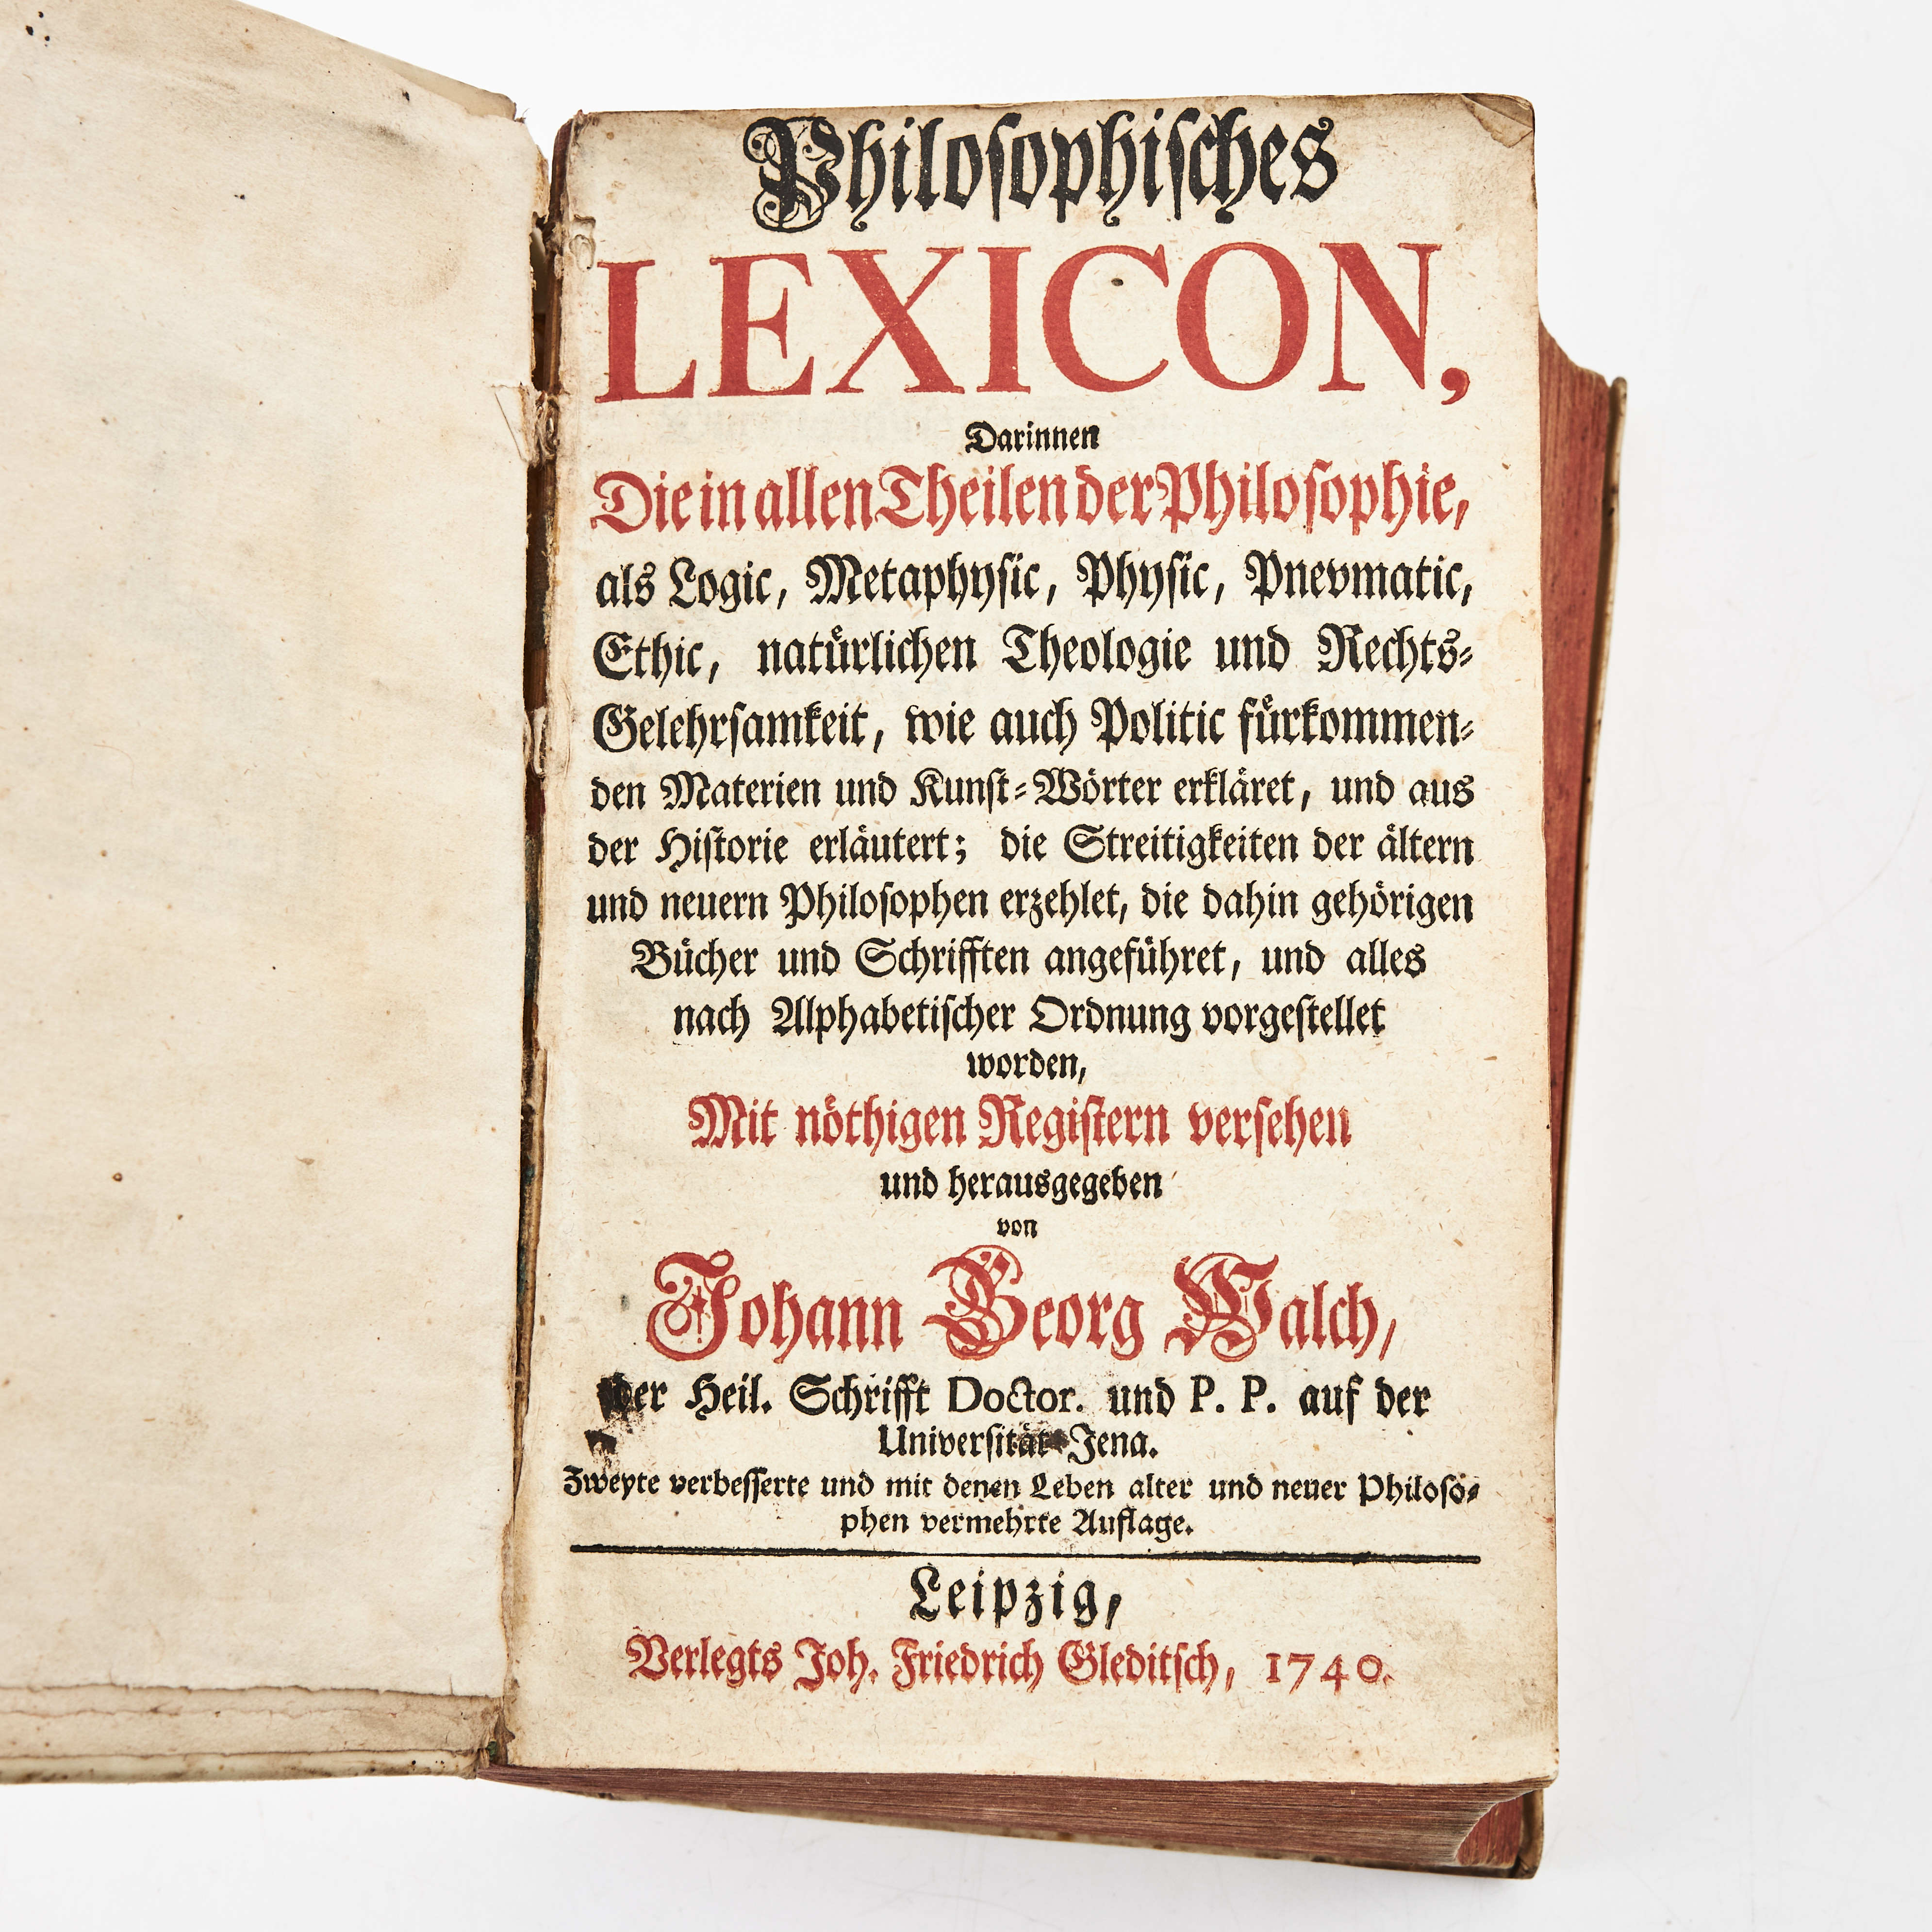 Philosophisches
LEXICON,
Darinnen
Die in allen Theilen der Philosophie,
als Logic, Metaphysic, Physic, Pnevmatic,
Ethic, natürlichen Theologie und Rechts-
Gelehrsamkeit, wie auch Politic fürkommen-
den Materien und Kunst-Wörter erkläret, und aus
der Historie erläutert; die Streitigkeiten der ältern
und neuern Philosophen erzehlet, die dahin gehörigen
Bücher und Schrifften angeführet, und alles
nach Alphabetischer Ordnung vorgestellet
worden,
Mit nöthigen Registern versehen
und herausgegeben
von
Johann Georg Walch,
der Heil. Schrifft Doctor. und P. P. auf der
Universität Jena.
Zweyte verbesserte und mit denen Leben alter und neuer Philoso-
phen vermehrte Auflage.
Leipzig,
Verlegts Joh. Friedrich Gleditsch, 1740.